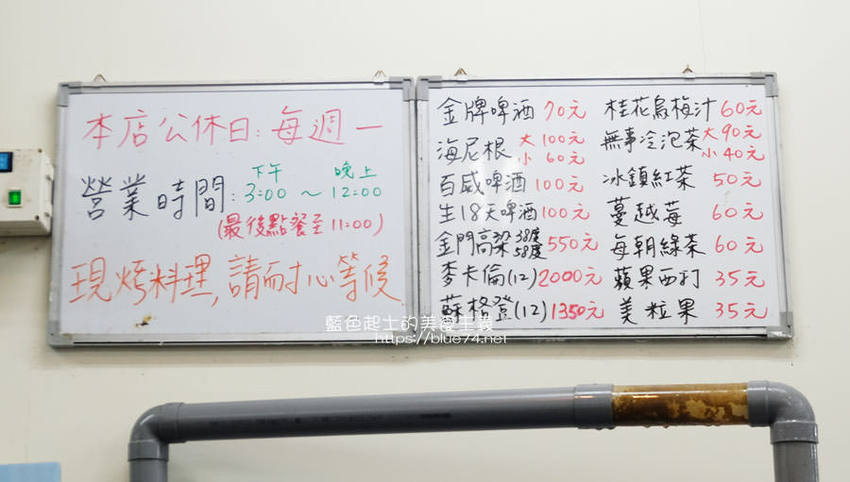 本店公休日:每週一
下午 晚上
營業時間:3:00~12:00
(最後點餐至11:00)
現烤料理,請耐心等候
金牌啤酒 70元
海尼根 大 100元
小 60元
百威啤酒 100元
生18天啤酒 100元
金門高粱 38度 58度 550元
麥卡倫(12) 2000元
蘇格登(12) 1350元
桂花烏梅汁 60元
無事冷泡茶 大 90元
小 40元
冰鎮紅茶 50元
蔓越莓 60元
每朝綠茶 60元
蘋果西打 35元
美粒果 35元
藍色起士的美食主義
https://blue74.net